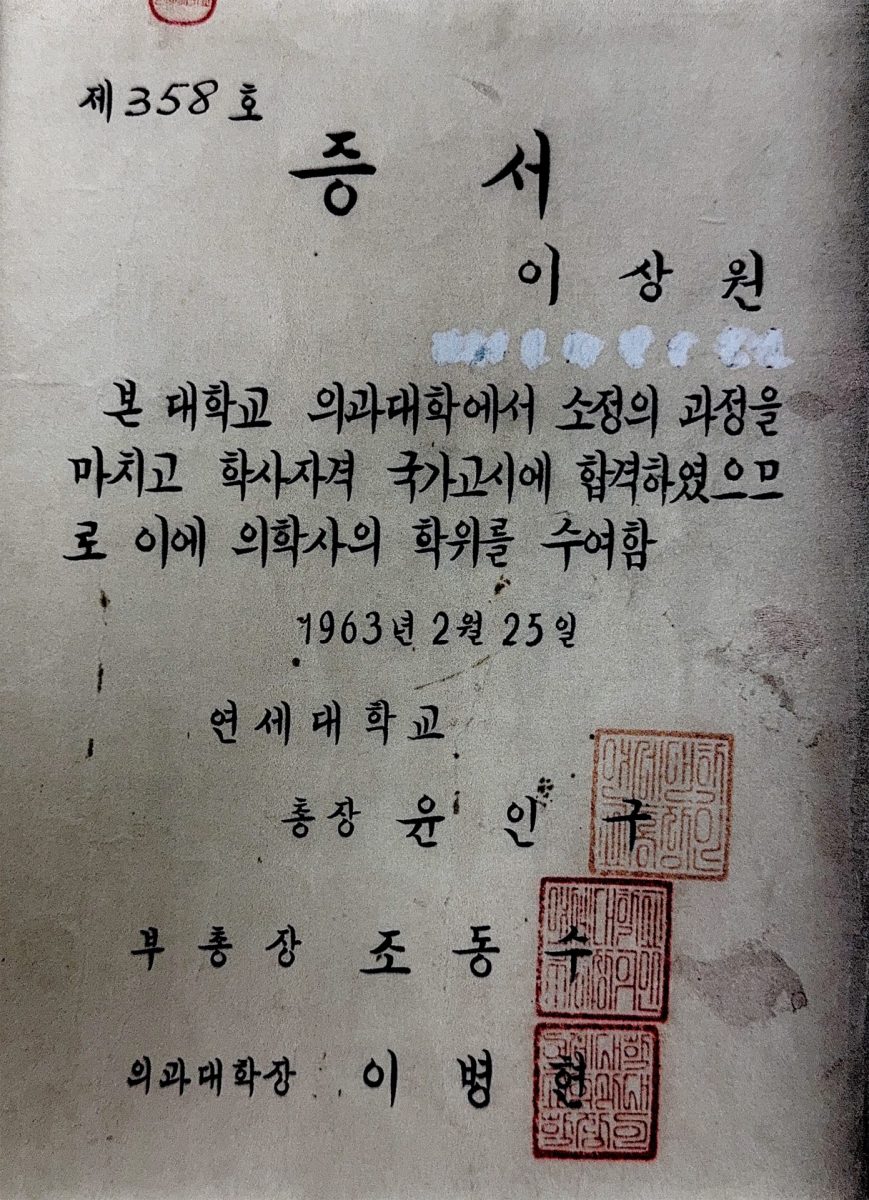 제358호
증 서
이 상 원
본 대학교 의과대학에서 소정의 과정을
마치고 학사자격 국가고시에 합격하였으므
로 이에 의학사의 학위를 수여함
1963년 2월 25일
연세대학교
총장 윤 인 구
부총장 조 동 수
의과대학장 이 병 현